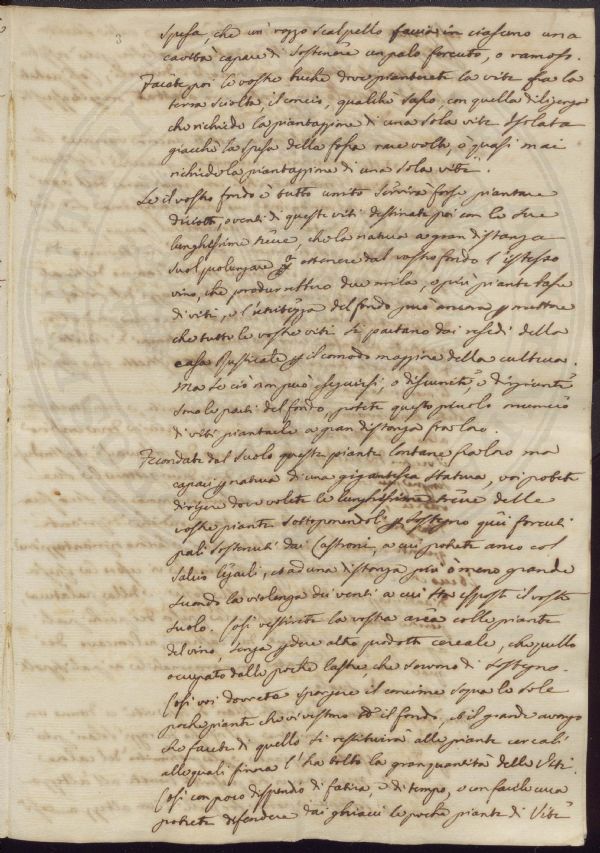 3
spesa, che un rozzo scalpello faccia in ciascuno una
cavità capace di sostenere un palo forcuto, o ramoso.
Facete poi le vostre buche dove piantarete la vite fra la
terra sciolta, il concio, qualche saſso, con quella diligenza
che richiede la piantazione di una sola vite isolata
giacchè la spesa della foſsa rare volte, o quasi mai
richiede la piantazione di una sola vite.
Se il vostro fondo è tutto unito servirà forse piantare
diciotto, o venti di queste viti destinate poi con le sue
lunghissime trecce, che la natura a gran distanza
suol prolungare ottenere dal vostro fondo l'istesso
vino, che produrrebbero due mila, o più piante basse
di viti, e l'utilezza del fondo può ancora permettere
che tutte le vostre viti si partano dai residi della
casa Rusticale per il comodo maggiore della cultura.
Ma se ciò non può eseguirsi, o disunite, e disgiunte
sono le parti del fondo, potete questo piccolo numero
di viti piantarle a gran distanza fra loro.
Fecondate dal suolo queste piante lontane fra loro ma
capaci per natura di una gigantesca statura, voi potete
dirigere dove volete le lunghissime trecce delle
vostre piante sottoponendoli per sostegno quei forcuti
pali sostenuti dai Castroni, a cui potete anco col
salcio legarli, et ad una distanza più o meno grande
secondo la violenza dei venti a cui sta esposto il vostro
suolo. Così vestirete la vostra area colle piante
del vino, senza perdere altro prodotto cereale, che quello
occupato dalle poche lastre, che servono di sostegno.
Così voi dovrete spargere il concime sopra le sole
poche piante che vi vestono il fondo, et il grande avanzo
che farete di quello si restituirà alle piante cereali
alle quali finora l'ha tolto la gran quantità delle Viti.
Così con poco dispendio di fatica, e di tempo, e con facile cura
potrete difendere dai ghiacci le poche piante di Vite